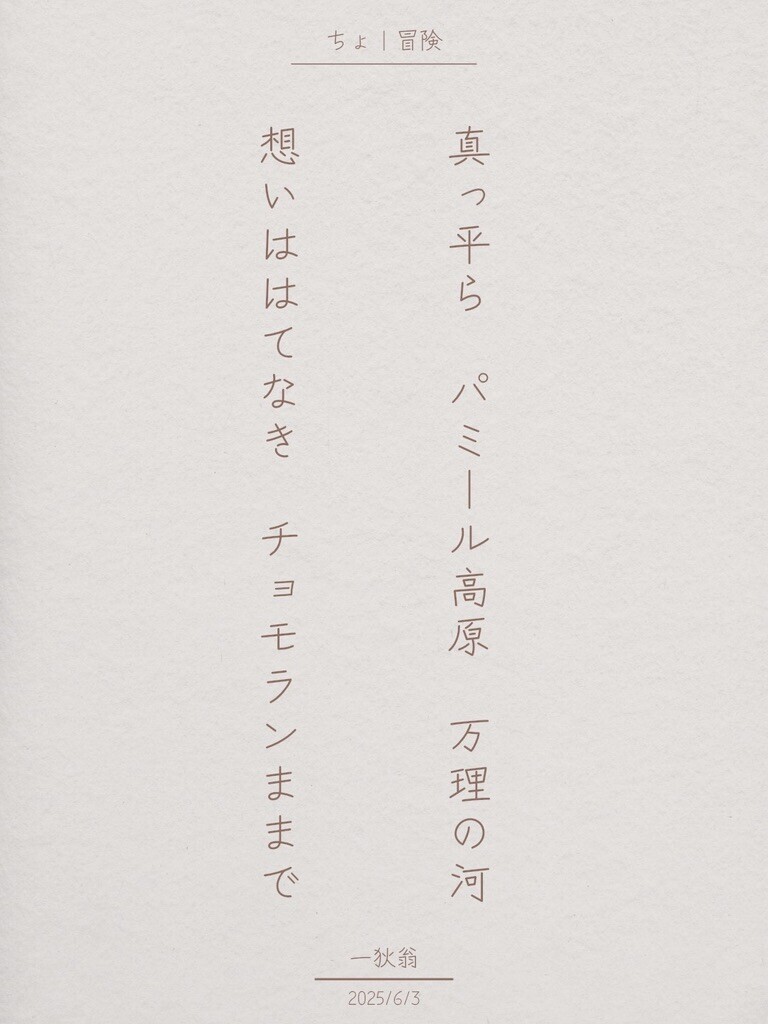 ちょ｜冒険
真っ平ら　パミール高原　万理の河
想いははてなき　チョモランままで
一狄翁
2025/6/3